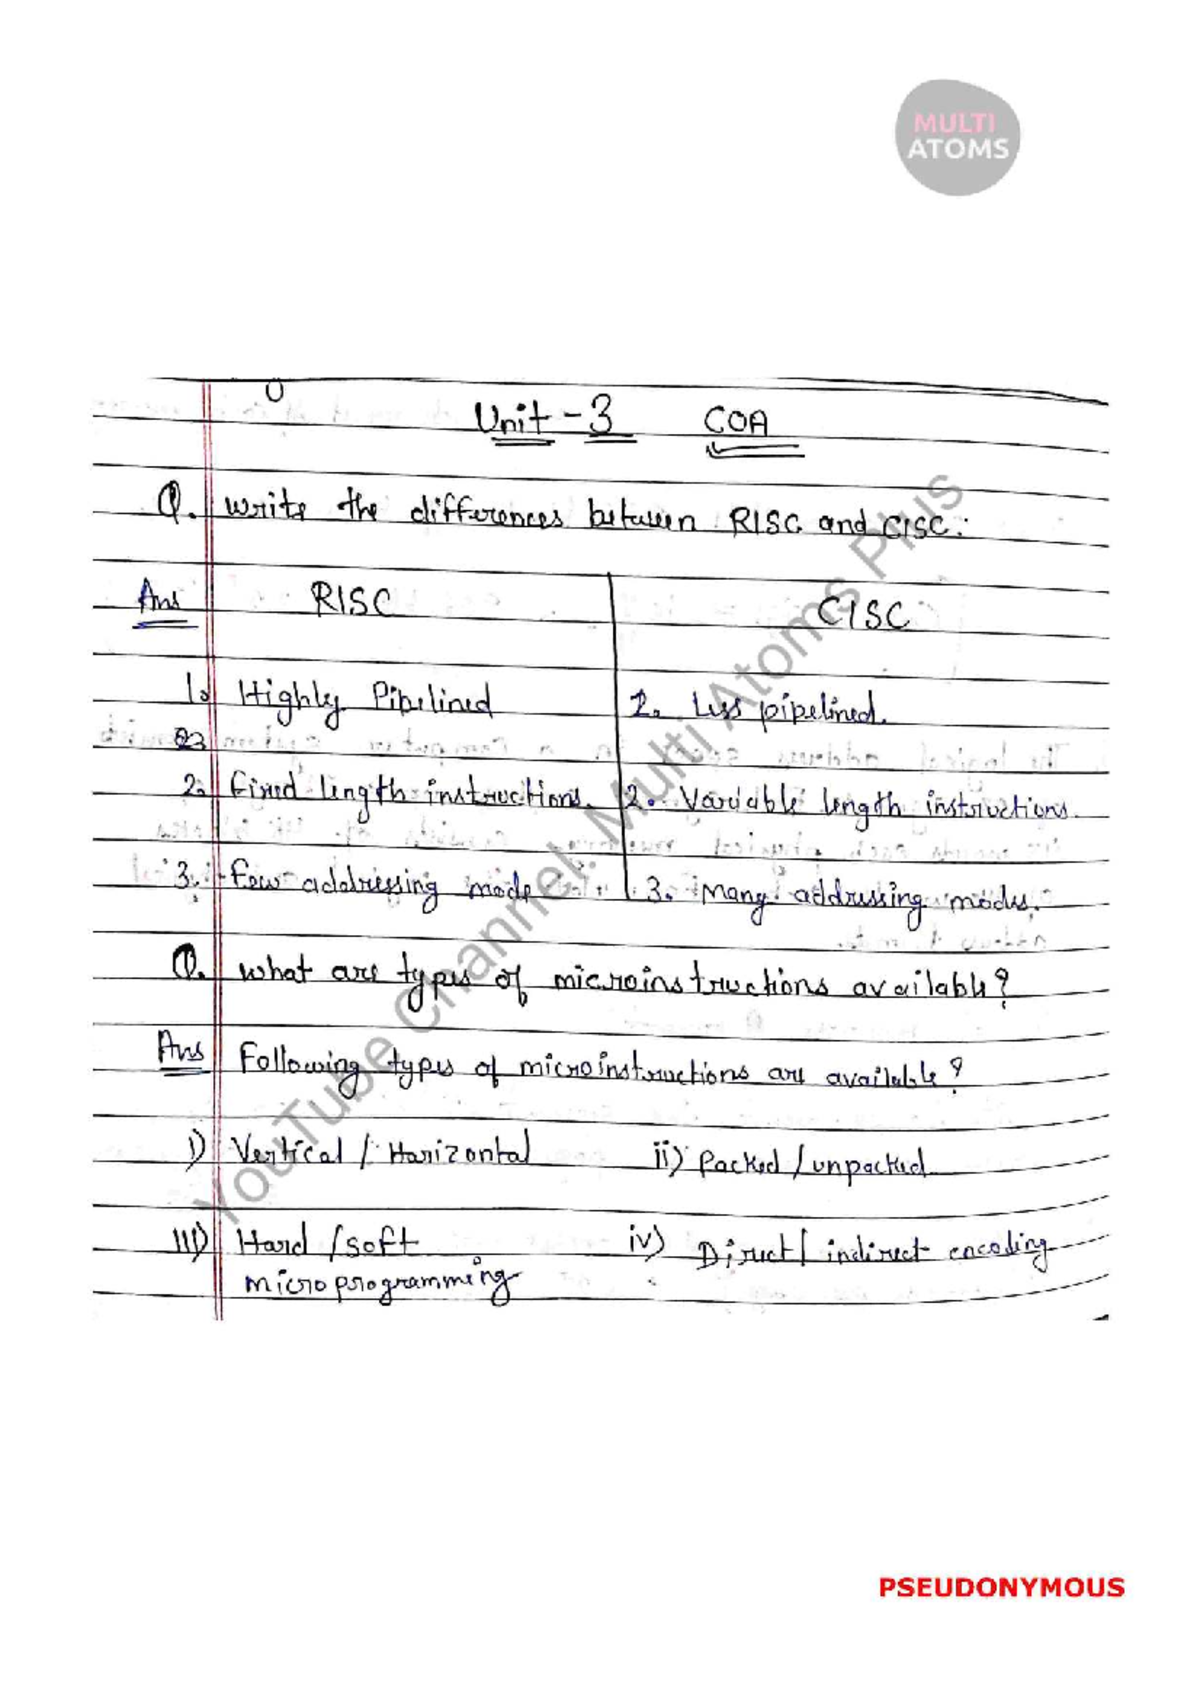 MULTI
ATOMS
Unit - 3 COA
Q. Write the differences between RISC and CISC.
Ans RISC CISC
1. Highly Pipelined 1. Less pipelined.
2. Fixed length instructions. 2. Variable length instructions.
3. Few addressing mode 3. Many addressing modes.
Q. What are types of microinstructions available?
Ans Following types of microinstructions are available?
i) Vertical / Harizontal ii) Packed / unpacked
iii) Hard / soft iv) Direct / indirect encoding
microprogramming
YouTube Channel: Multi Atoms Plus
PSEUDONYMOUS